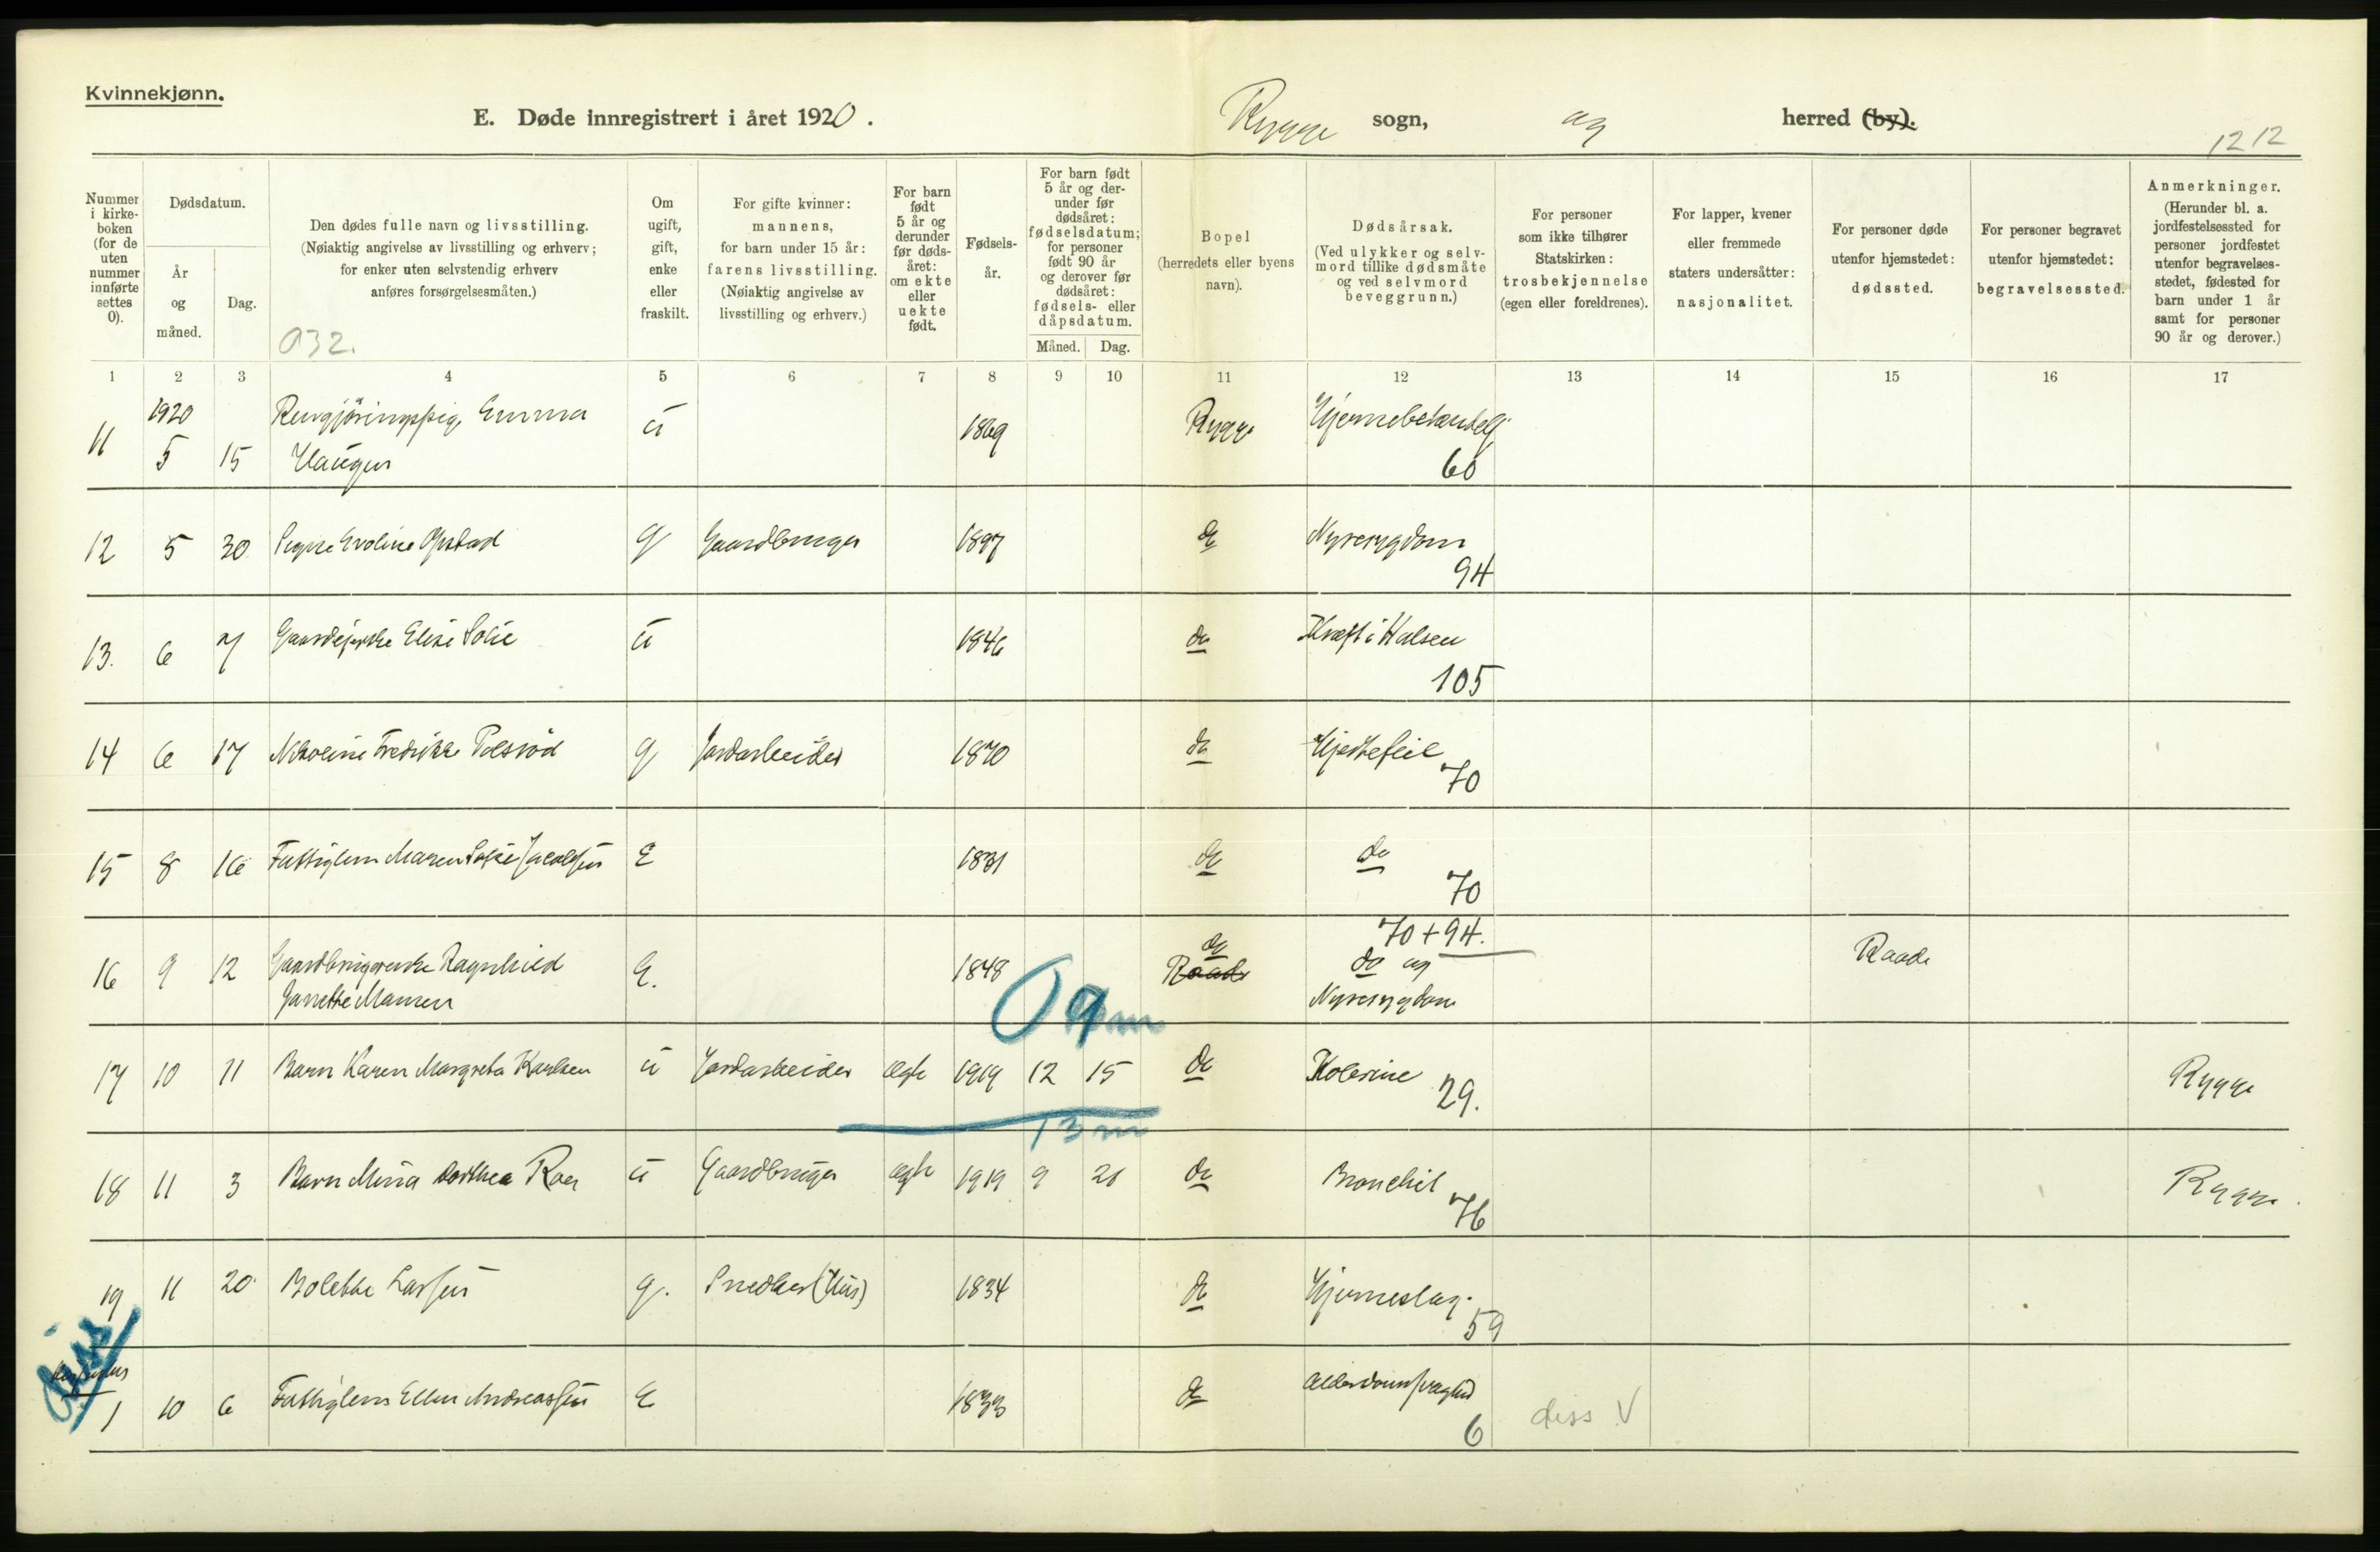 Kvinnekjønn.
E. Døde innregistrert i året 1920.
Rygge sogn, og herred (by).
1212
Nummer i kirkeboken (for de uten nummer innførte settes 0).
Dødsdatum.
År og måned.
Dag.
Den dødes fulle navn og livsstilling.
(Nøiaktig angivelse av livsstilling og erhverv;
for enker uten selvstendig erhverv
anføres forsørgelsesmåten.)
032.
Om ugift, gift, enke eller fraskilt.
For gifte kvinner:
mannens,
for barn under 15 år:
farens livsstilling.
(Nøiaktig angivelse av
livsstilling og erhverv.)
For barn født 5 år og derunder før dødsåret: om ekte eller uekte født.
Fødselsår.
For barn født 5 år og derunder før dødsåret: fødselsdatum; for personer født 90 år og derover før dødsåret: fødsels- eller dåpsdatum.
Måned. Dag.
Bopel
(herredets eller byens
navn).
Dødsårsak.
(Ved ulykker og selvmord tillike dødsmåte og ved selvmord beveggrunn.)
For personer
som ikke tilhører
Statskirken:
trosbekjennelse
(egen eller foreldrenes).
For lapper, kvener
eller fremmede
staters undersåtter:
nasjonalitet.
For personer døde
utenfor hjemstedet:
dødssted.
For personer begravet
utenfor hjemstedet:
begravelsessted.
Anmerkninger.
(Herunder bl. a.
jordfestelsessted for
personer jordfestet
utenfor begravelsesstedet, fødested for
barn under 1 år
samt for personer
90 år og derover.)
1 2 3 4 5 6 7 8 9 10 11 12 13 14 15 16 17
1920
11 5 15 Emma Haugen u 1869 Rygge 60
12 5 30 g Gaardbruger 1897 do Nyresygdom 94
13. 6 7 Elise u 1846 do Kræft i Halsen 105
14 6 17 Nikoline Fredrikke g Jordarbeider 1870 do Hjertefeil 70
15 8 16 Fattiglem Maren Sofie Jacobsen E 1831 do do 70
70 + 94.
16 9 12 Ragnhild E. 1848 do Raade do og Nyresygdom Raade
09m
17 10 11 Barn Karen Margrete Karlsen u Jordarbeider ægte 1919 12 15 do Kolerine 29. Rygge
13 m
18 11 3 Barn Mina Dorthea Roer u Gaardbruger ægte 1919 9 21 do Bronchit 76 Rygge.
19 11 20 Bolette Larsen g. Snedker (Hus) 1834 do Hjerneslag. 59
diss
1 10 6 Fattiglem Ellen Andreassen E 1833 do 6 diss V